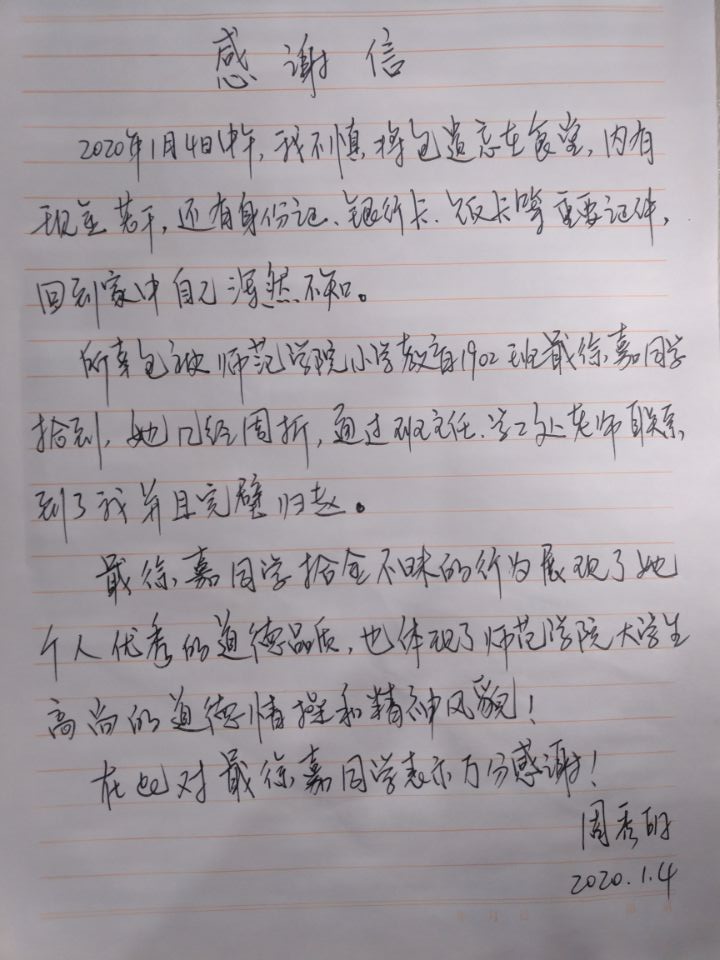 感谢信
2020年1月4日中午,我不慎将包遗忘在食堂,内有
现金若干,还有身份证、银行卡、饭卡等重要证件,
回到家中自己浑然不知。
所幸包被师范学院小学教育1902班戴徐嘉同学
拾到,她几经周折,通过班主任、学工处老师联系
到了我并且完璧归赵。
戴徐嘉同学拾金不昧的行为展现了她
个人优秀的道德品质,也体现了师范学院大学生
高尚的道德情操和精神风貌!
在此对戴徐嘉同学表示万分感谢!
周秀
2020.1.4